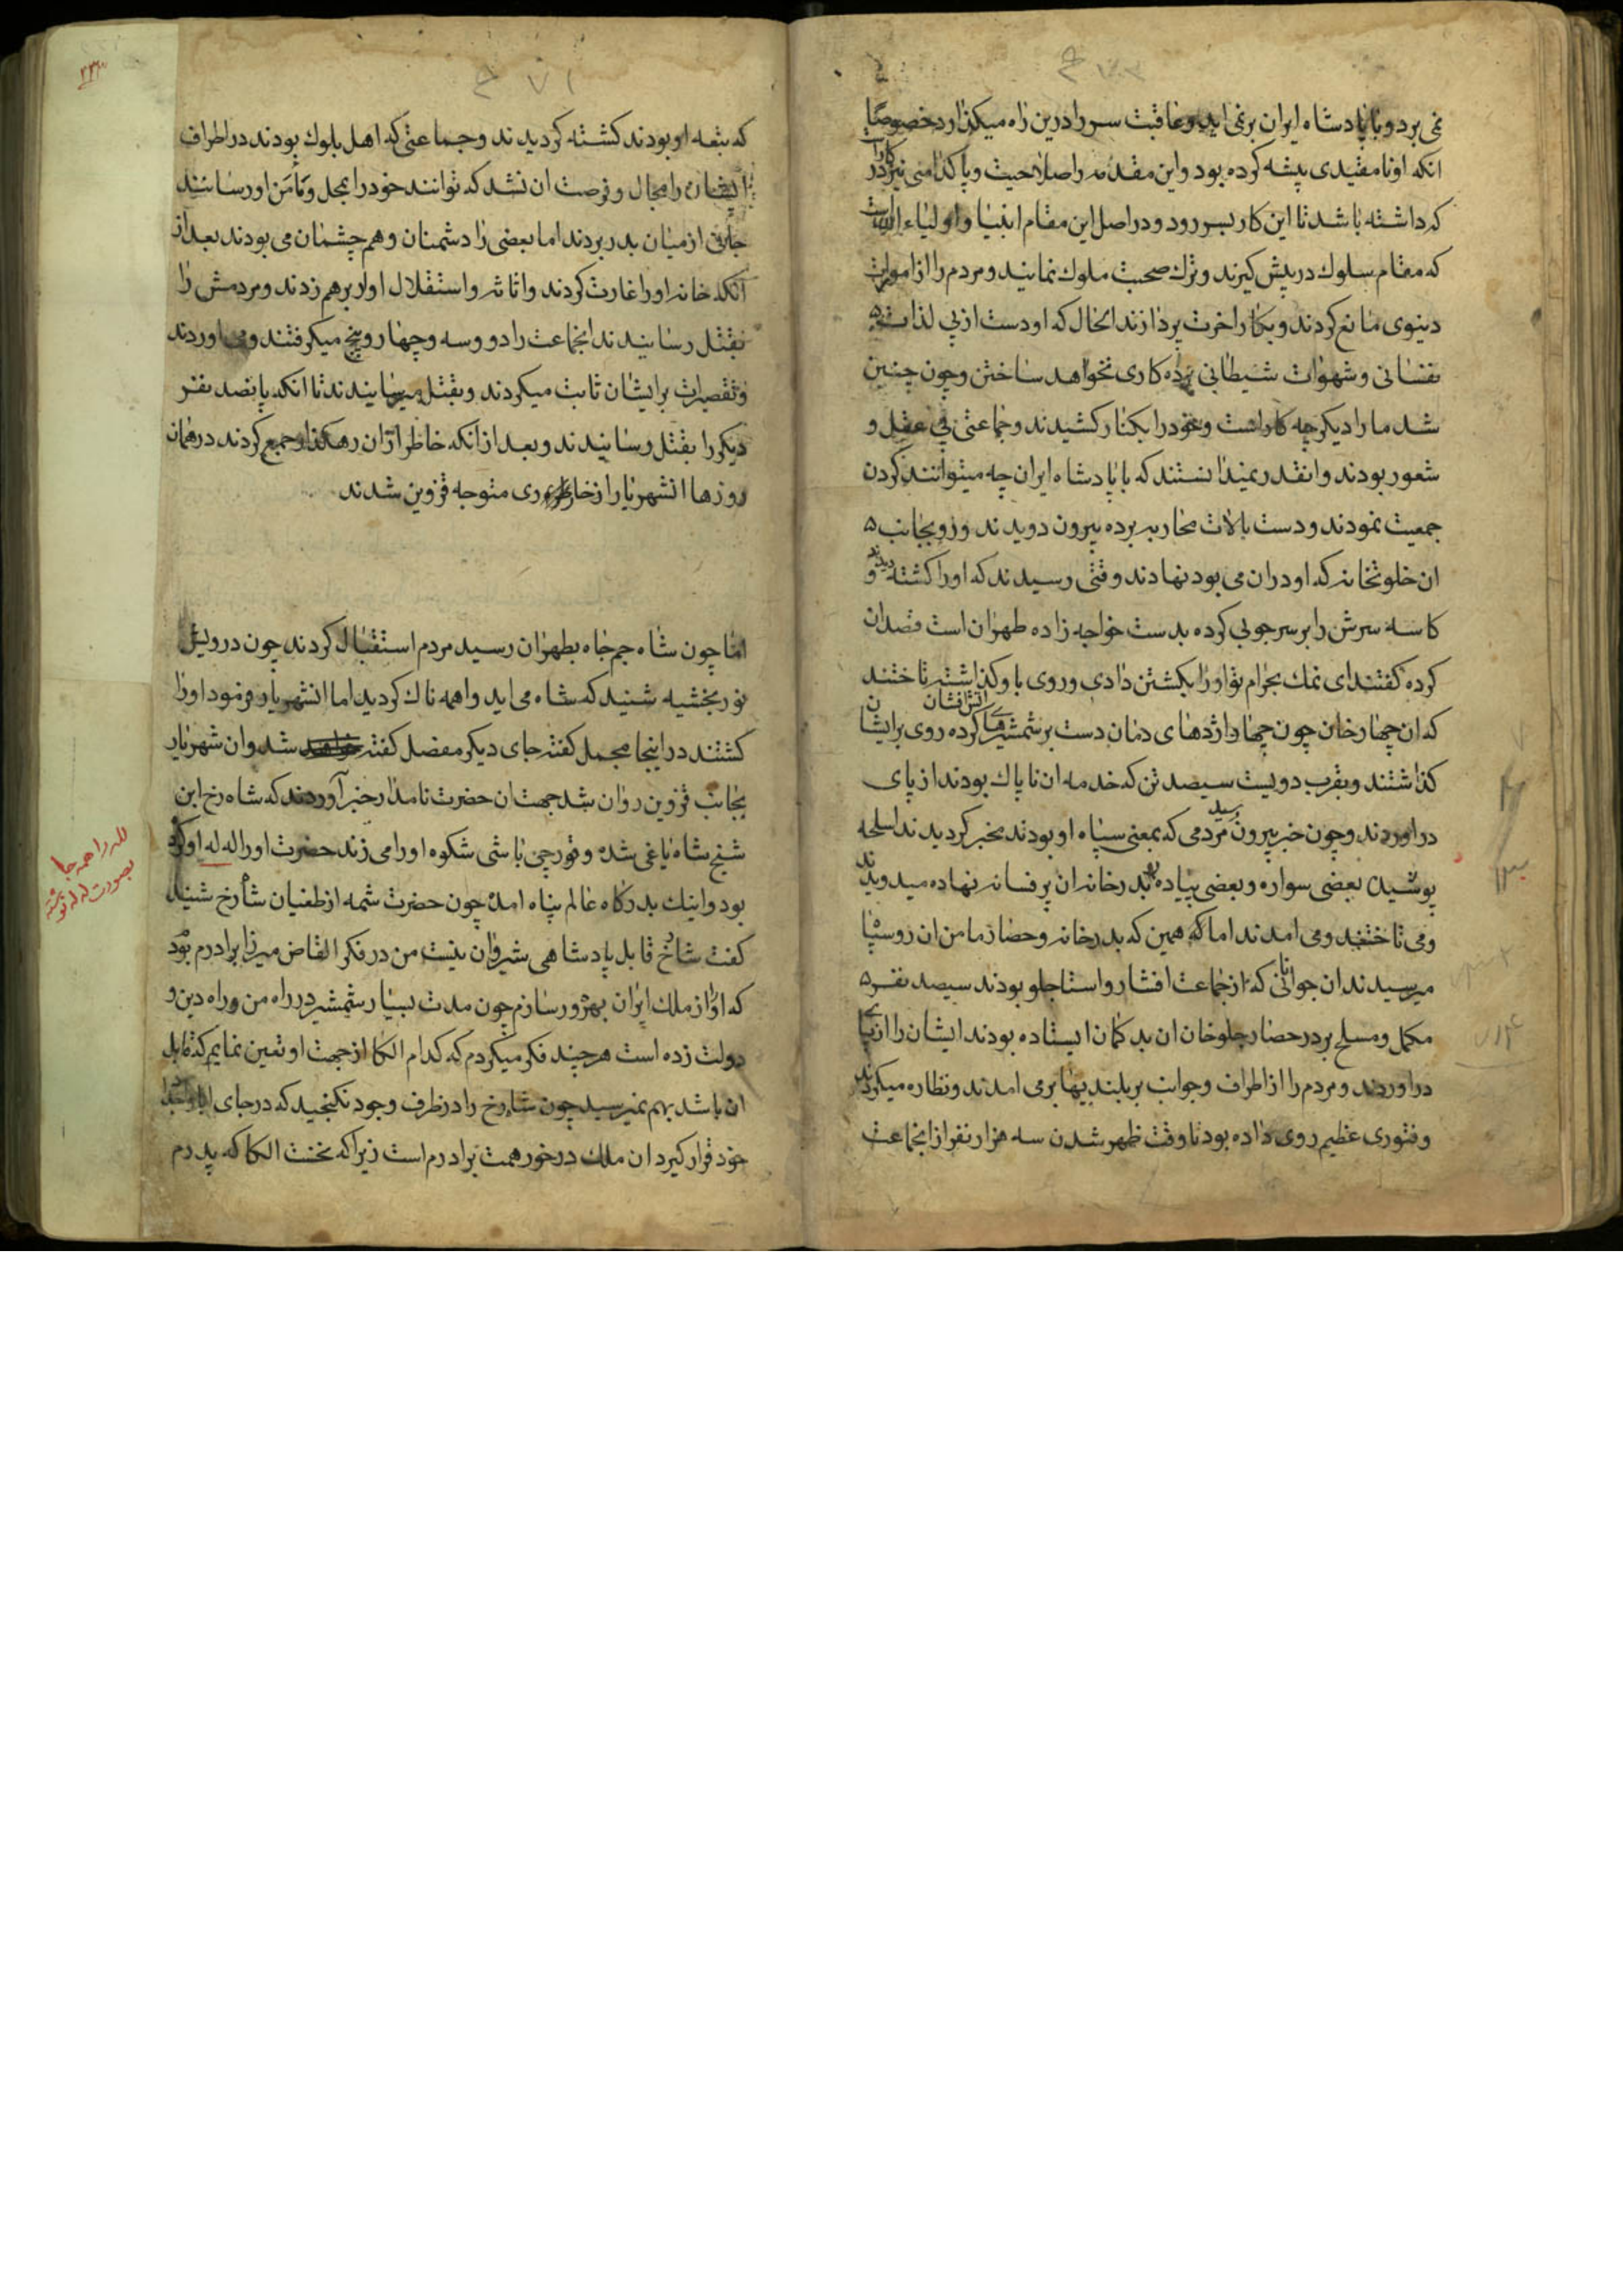 نمی برد و با پادشاه ایران بر نمی اید و عاقبت سر را درین راه میکذارد خصوصًا
انکه او نامقیدی پیشه کرده بود و این مقدمه را صلاحیت و پاکدامنی نیز در کار
که داشته باشد تا این کار بسر رود و در اصل این مقام انبیا و اولیاء الله است
که مقام سلوك در پیش کیرند و ترك صحبت ملوك نمایند و مردم را از امورات
دینوی مانع کردند و بکار اخرت پردازند انحال که او دست از پی لذات
نفسانی و شهوات شیطانی برده کاری نخواهد ساختن و چون چنین
شد ما را دیکر چه کار است و خود را بکنار کشیدند و جماعتی بی عقل و
شعور بودند و انقدر نمیدانستند که با پادشاه ایران چه میتوانند کردن
جمعیت نمودند و دست بالات محاربه برده بیرون دویدند و رو بجانب
ان خلوتخانه که او دران می بود نهادند وقتی رسیدند که او را کشته دیدند و
کاسه سرش را بر سر چوبی کرده بدست خواجه زاده طهران است قصد ان
کرده کفتند ای نمك بحرام تو او را بکشتن دادی و روی باو کذاشته تاختند
که ان چهار خان چون چهار اژدهای دمان دست بر شمشیرهای اتش افشان کرده روی برایشان
کذاشتند و بقرب دویست سیصد تن که خدمه ان ناپاك بودند از پای
در اوردند و چون خبر بیرون رسید مردمی که بمعنی سپاه او بودند مخبر کردیدند اسلحه
پوشیده بعضی سواره و بعضی پیاده بدرخانه ان پر فسانه نهاده میدویدند
و می تاختند و می امدند اما که همین که بدرخانه و حصار مامن ان روسیاه
میرسیدند ان جوانانی که از جماعت افشار و استاجلو بودند سیصد نفر
مکمل و مسلح بر در حصار جلو خان ان بدکمان ایستاده بودند ایشان را از پا
در اوردند و مردم را از اطراف و جوانب بر بلندیها بر می امدند و نظاره میکردند
و فتوری عظیم روی داده بود تا وقت ظهر شدن سه هزار نفر از انجماعت
که تبعه او بودند کشته کردیدند و جماعتی که اهل بلوك بودند در اطراف
ایشان را مجال و فرصت ان نشد که توانند خود را بمحل و مامن او رسانند
جانی از میان بدر بردند اما بعضی را دشمنان و هم چشمان می بودند بعد از
انکه خانه او را غارت کردند و اثاثه و استقلال او را برهم زدند و مردمش را
بقتل رسانیدند انجماعت را دو و سه و چهار و پنج میکرفتند و می اوردند
و تقصیرات برایشان ثابت میکردند و بقتل میرسانیدند تا انکه پانصد نفر
دیکر را بقتل رسانیدند و بعد از انکه خاطر از ان رهکذار جمع کردند در همان
روزها انشهریار از خار ری متوجه قزوین شدند
اما چون شاه جم جاه بطهران رسید مردم استقبال کردند چون درویش
نوربخشیه شنید که شاه می اید واهمه ناك کردید اما انشهریار فرمود او را
کشتند در اینجا مجمل کفته جای دیکر مفصل کفته شد و ان شهریار
بجانب قزوین روان شد جهت ان حضرت نامدار خبر آوردند که شاه رخ ابن
شیخ شاه یاغی شده و قورچی باشی شکوه او را می زند حضرت او را لله او کرده
بود و اینك بدرکاه عالم پناه امده چون حضرت شمه از طغیان شاهرخ شنید
کفت شاهرخ قابل پادشاهی شیروان نیست من در فکر القاص میرزا برادرم بود
که او را از ملك ایران بهره ور سازم چون مدت بسیار شمشیر در راه من و راه دین و
دولت زده است هر چند فکر میکردم که کدام الکا از جهت او تعین نمایم که قابل
ان باشد بهم نمیرسید چون شاهرخ را در ظرف وجود نکنجید که در جای
خود قرار کیرد ان ملك در خور همت برادرم است زیرا که نخست الکا که پدرم
لله را همه جا
بصورت له له نوشته
۲۳۳